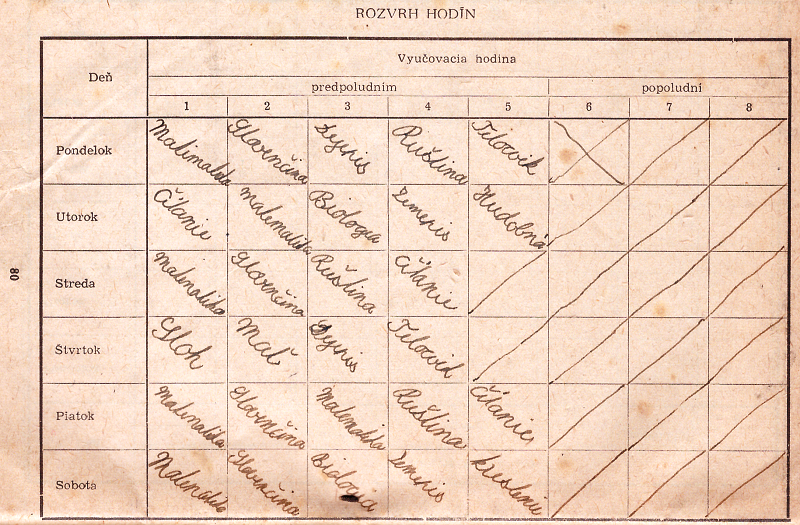 ROZVRH HODÍN
Deň
Vyučovacia hodina
predpoludním popoludní
1 2 3 4 5 6 7 8
Pondelok Matimatika Slovenčina Dejepis Ruština Telocvik
Utorok Čítanie Matematika Biologia Zemepis Hudobná
Streda Matematika Slovenčina Ruština Čítanie
Štvrtok Sloh Mat. Dejepis Telocvik
Piatok Matematika Slovenčina Matematika Ruština Čítanie
Sobota Matematika Slovenčina Biologia Zemepis Kreslenie
80